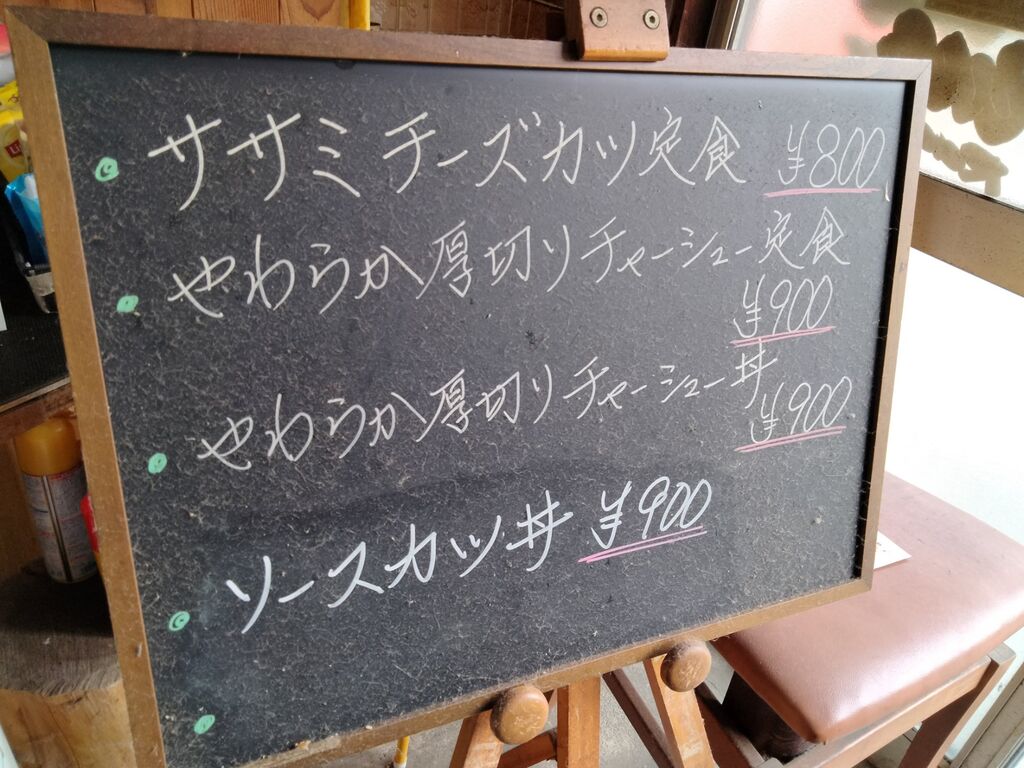 ササミチーズカツ定食 ¥800
やわらか厚切りチャーシュー定食
¥900
やわらか厚切りチャーシュー丼
¥900
ソースカツ丼 ¥900